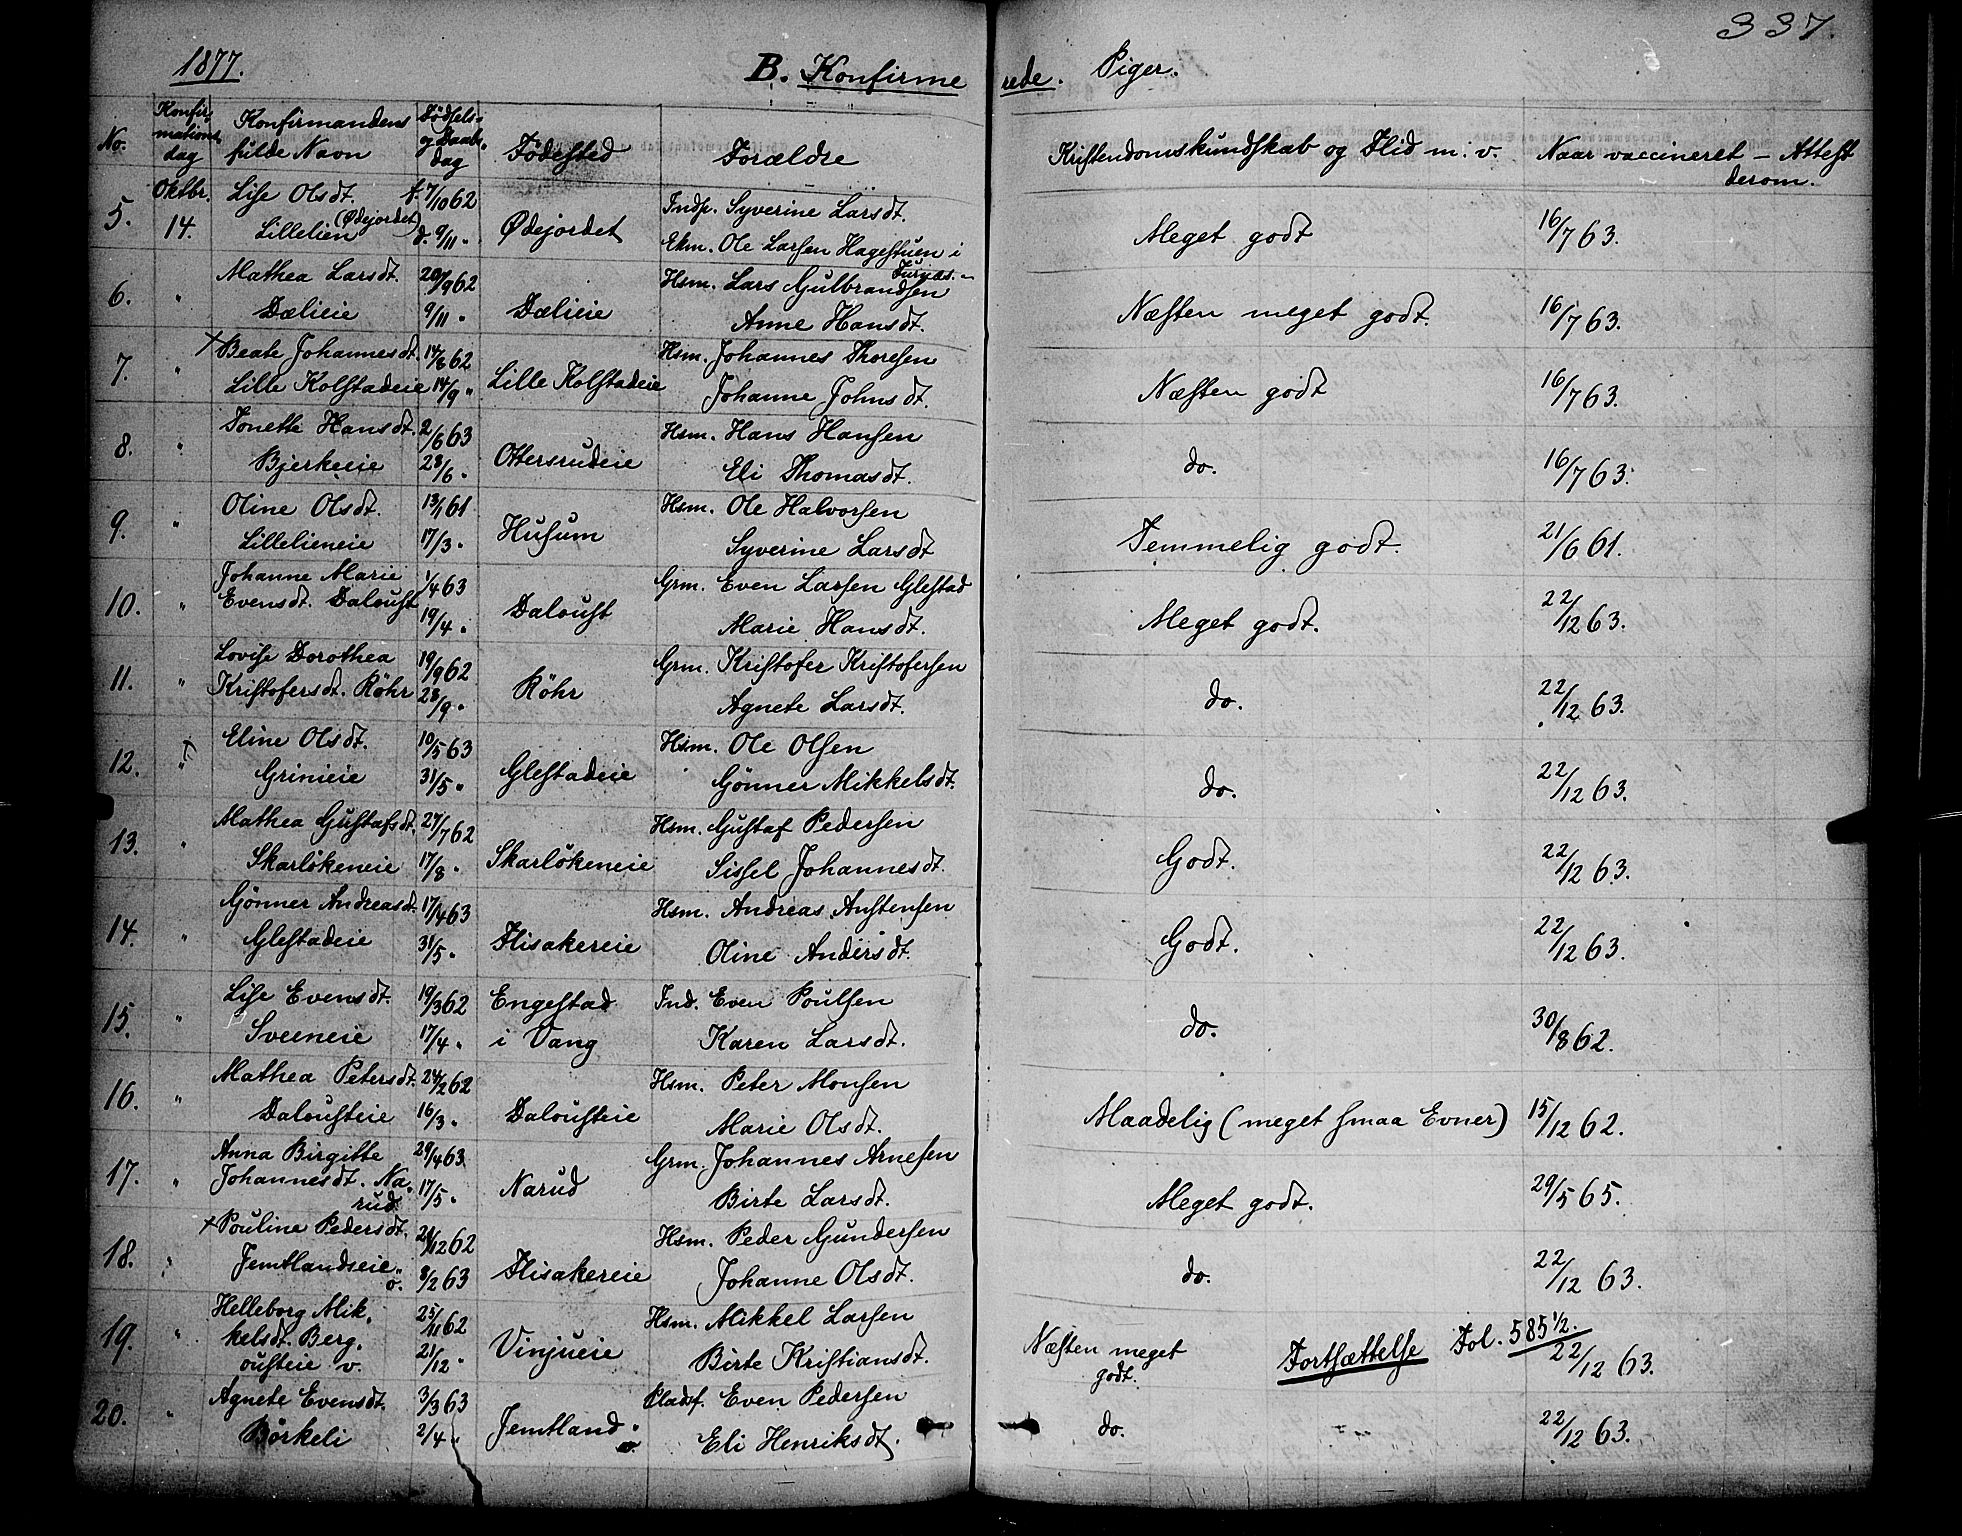 337.
1877. B. Konfirmerede. Piger.
No. Konfirmationsdag Konfirmandens fulde Navn Födsels- og Daabsdag Födested Forældre Kristendomskundskab og Flid m. v. Naar vaccineret – Attest derom.
5. Oktbr. 14. Lise Olsdt. f. 7/10 62 Ødejordet Indp. Syverine Larsdt. Meget godt 16/7 63.
Lillelien (Ødejordet) d. 9/11 " Ekm. Ole Larsen Hagestuen i Furnæs.
6. " Mathea Larsdt. 20/9 62 Dælieie Hsm. Lars Gulbrandsen Næsten meget godt. 16/7 63.
Dælieie 9/11 " Anne Hansdt.
7. " + Beate Johannesdt. 14/8 62 Lille Kolstadeie Hsm. Johannes Thoresen Næsten godt 16/7 63.
Lille Kolstadeie 14/9 " Johanne Johnsdt.
8. " Tonette Hansdt. 2/6 63 Ottersrudeie Hsm. Hans Hansen do. 16/7 63.
Bjerkeeie 28/6 " Eli Thomasdt.
9. " Oline Olsdt. 13/1 61 Husum Hsm. Ole Halvorsen Temmelig godt. 21/6 61.
Lillelieneie 17/3 " Syverine Larsdt
10. " Johanne Marie 1/4 63 Daloust Grm. Even Larsen Glestad Meget godt. 22/12 63.
Evensdt. Daloust 19/4 " Marie Hansdt.
11. " Lovise Dorothea 19/9 62 Röhr Grm. Kristofer Kristofersen do. 22/12 63.
Kristofersdt. Röhr 28/9 " Agnete Larsdt.
12. " Eline Olsdt. 10/5 63 Glestadeie Hsm. Ole Olsen do. 22/12 63.
Grinieie 31/5 " Gönner Mikkelsdt.
13. " Mathea Gustafsdt. 27/7 62 Skarlökeneie Hsm. Gustaf Pedersen Godt. 22/12 63.
Skarlökeneie 17/8 " Sissel Johannesdt.
14. " Gönner Andreasdt. 17/4 63 Flisakereie Hsm. Andreas Anstensen Godt. 22/12 63.
Glestadeie 31/5 " Oline Andersdt.
15. " Lise Evensdt. 19/3 62 Engestad Ind. Even Poulsen do. 30/8 62.
Sveeneie 17/4 " i Vang Karen Larsdt.
16. " Mathea Petersdt. 24/2 62 Dalousteie Hsm. Peter Monsen Maadelig (meget smaa Evner) 15/12 62.
Dalousteie 16/3 " Marie Olsdt.
17. " Anna Birgitte 29/4 63 Narud Grm. Johannes Arnesen Meget godt. 29/5 65.
Johannesdt. Narud 17/5 " Birte Larsdt.
18. " + Pouline Pedersdt. /12 62 Flisakereie Hsm. Peder Gundersen do. 22/12 63.
Jemtlandseie. ö. 8/2 63 Johanne Olsdt.
19. " Helleborg Mik- 25/11 62 Vinjueie Hsm. Mikkel Larsen Næsten meget godt. Fortsættelse Fol. 585 1/2. 22/12 63.
kelsdt. Berg- 21/12 " Birte Kristiansdt.
ousteie v.
20. " Agnete Evensdt. 3/3 63 Jemtland. ö Pladsf. Even Pedersen do. 22/12 63.
Börkeli 2/4 " Eli Henriksdt.